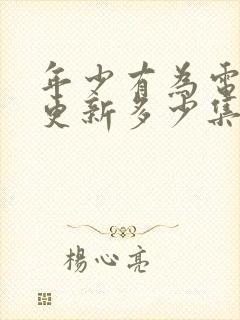 年少有為電
更新多少集
楊心亮